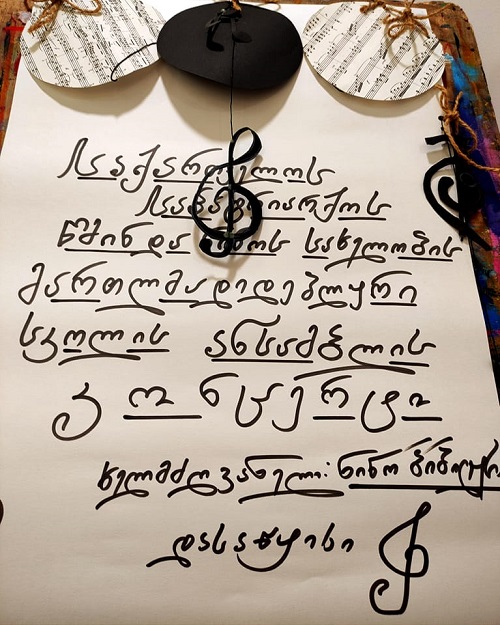 საქართველოს
საპატრიარქოს
წმინდა ნინოს სახელობის
მართლმადიდებლური
სკოლის ანსამბლის
კონცერტი
ხელმძღვანელი: ნინო
დასაწყისი